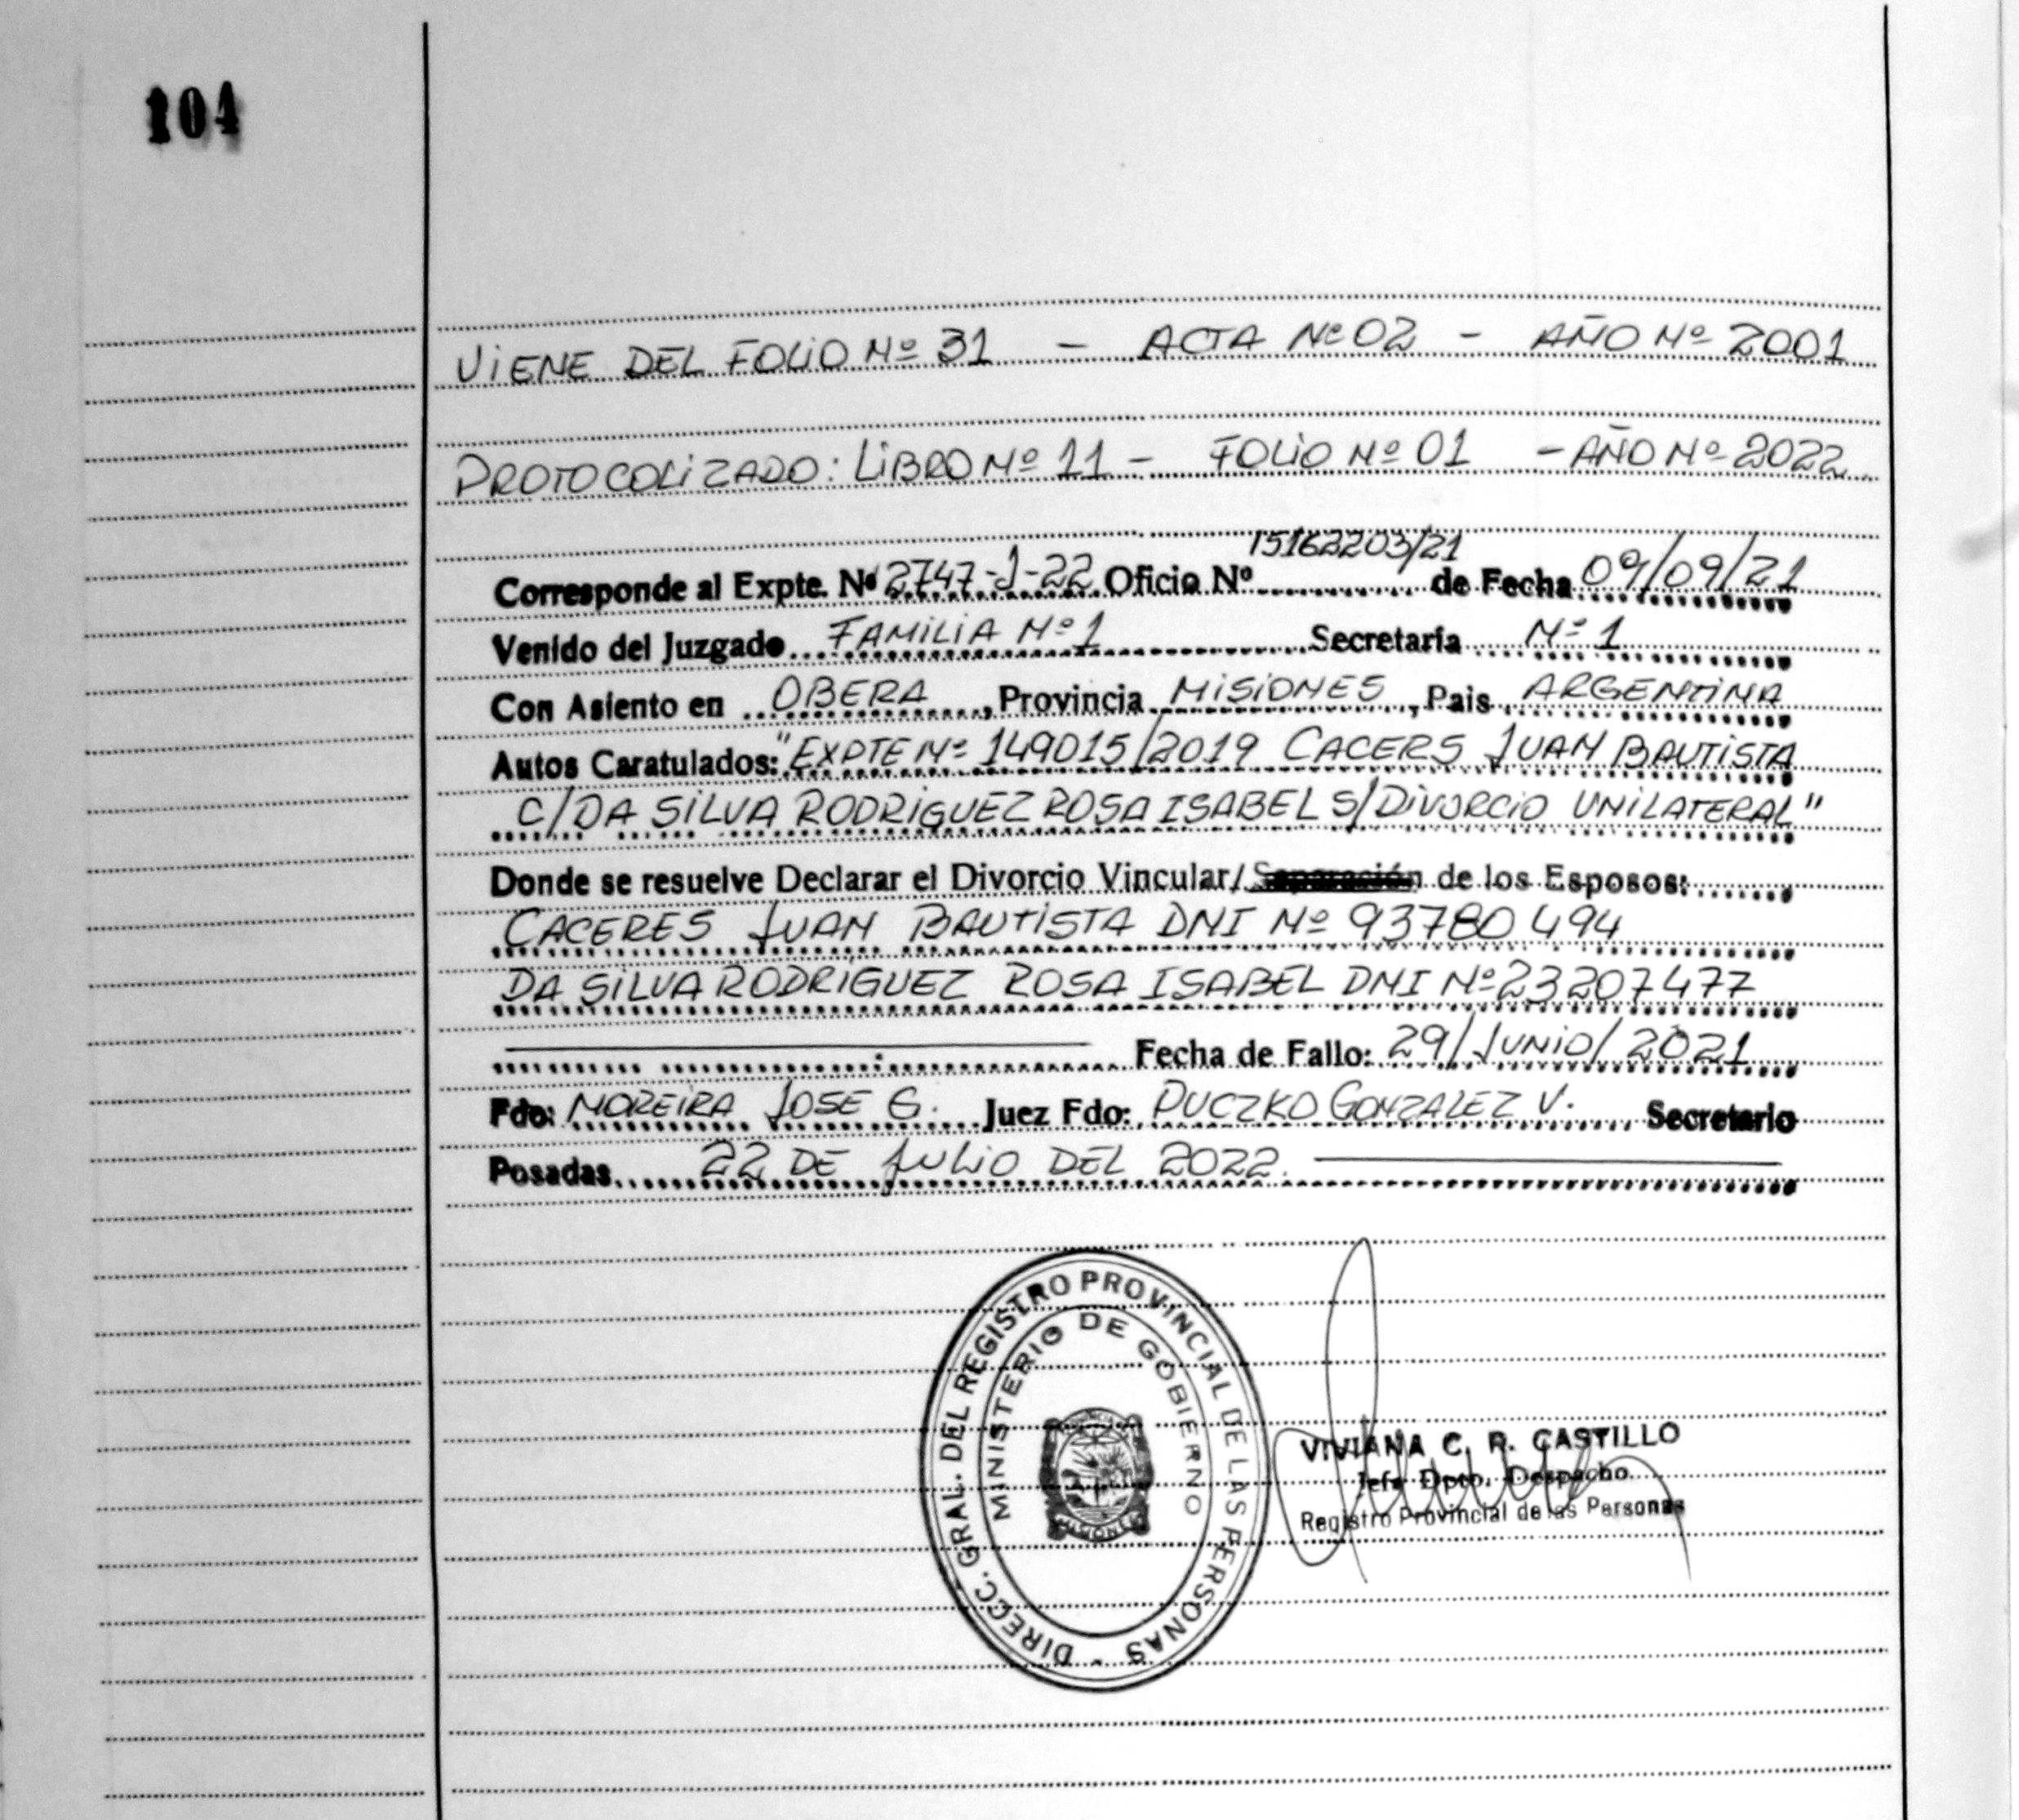 104
VIENE DEL FOLIO Nº 31 - ACTA Nº 02 - AÑO Nº 2001
PROTOCOLIZADO: LIBRO Nº 11 - FOLIO Nº 01 - AÑO Nº 2022
15162203/21
Corresponde al Expte. Nº 2747-J-22 Oficio Nº de Fecha 09/09/21
Venido del Juzgado FAMILIA Nº 1 Secretaría Nº 1
Con Asiento en OBERA, Provincia MISIONES, Pais ARGENTINA
Autos Caratulados: "EXPTE Nº 149015/2019 CACERS JUAN BAUTISTA
C/DA SILVA RODRIGUEZ ROSA ISABEL S/DIVORCIO UNILATERAL"
Donde se resuelve Declarar el Divorcio Vincular/Separación de los Esposos:
CACERES JUAN BAUTISTA DNI Nº 93780494
DA SILVA RODRIGUEZ ROSA ISABEL DNI Nº 23207477
Fecha de Fallo: 29/JUNIO/2021
Fdo: MOREIRA JOSE G. Juez Fdo: PUCZKO GONZALEZ V. Secretario
Posadas 22 DE JULIO DEL 2022.
DIRECC. GRAL. DEL REGISTRO PROVINCIAL DE LAS PERSONAS -
MINISTERIO DE GOBIERNO
MISIONES
VIVIANA C. R. CASTILLO
Jefa Dpto. Despacho
Registro Provincial de las Personas